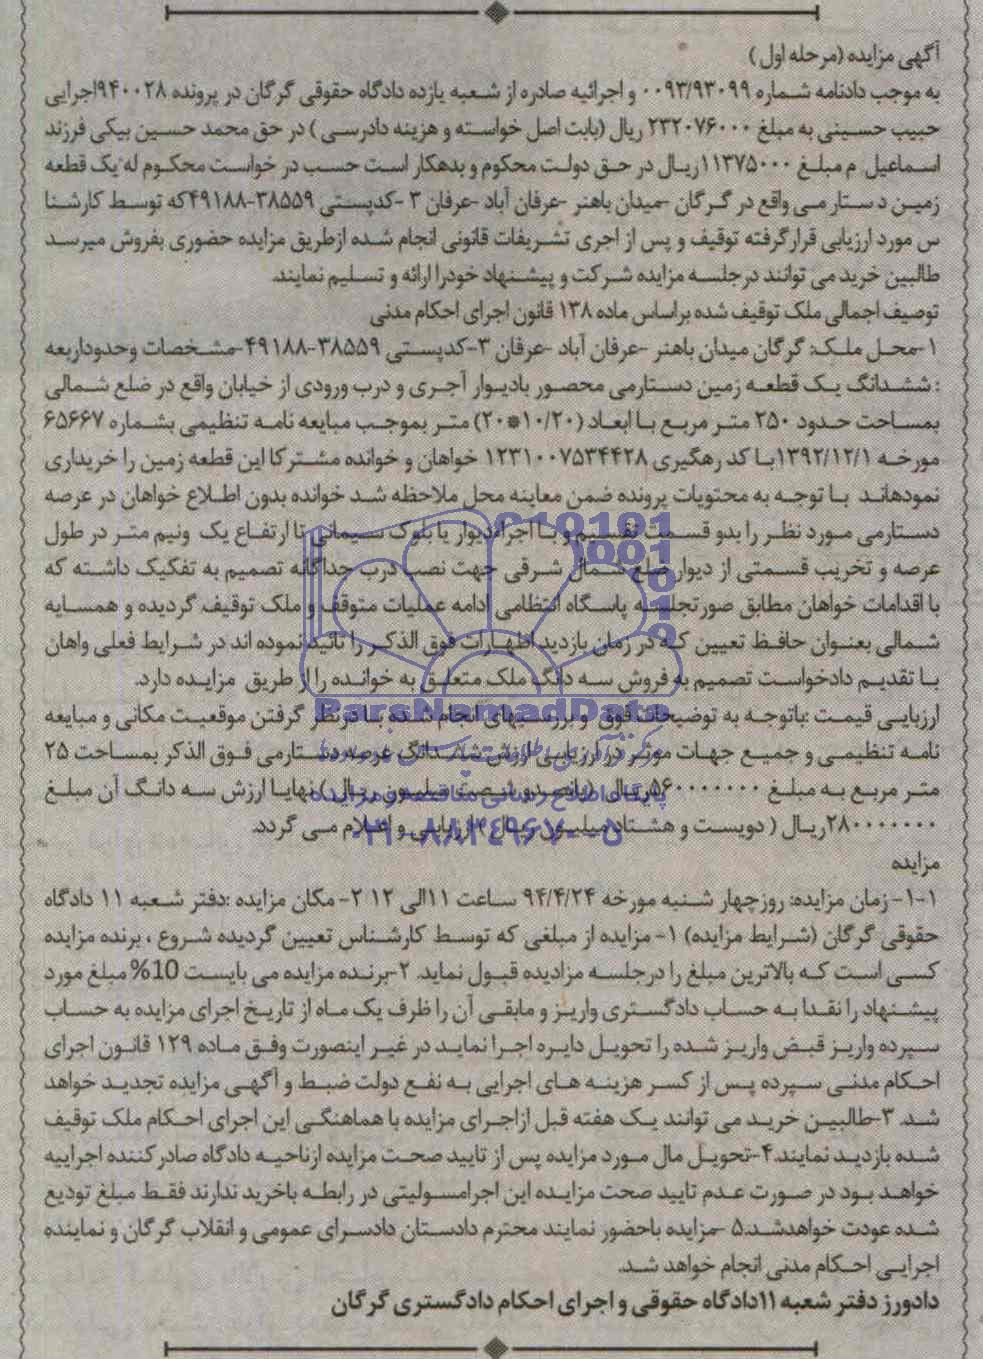 آگهی مزایده (مرحله اول)
به موجب دادنامه شماره ۰۰۹۳/۹۳۰۹۹ و اجرائیه صادره از شعبه یازده دادگاه حقوقی گرگان در پرونده ۹۴۰۰۲۸اجرایی
حبیب حسینی به مبلغ ۲۳۲۰۷۶۰۰۰ ریال (بابت اصل خواسته و هزینه دادرسی) در حق محمد حسین بیکی فرزند
اسماعیل م مبلغ ۱۱۳۷۵۰۰۰ریال در حق دولت محکوم و بدهکار است حسب در خواست محکوم له یک قطعه
زمین د ستار می واقع در گرگان -میدان باهنر -عرفان آباد -عرفان ۳ -کدپستی ۳۸۵۵۹-۴۹۱۸۸که توسط کارشنا
س مورد ارزیابی قرار گرفته توقیف و پس از اجری تشریفات قانونی انجام شده ازطریق مزایده حضوری بفروش میرسد
طالبین خرید می توانند درجلسه مزایده شرکت و پیشنهاد خودرا ارائه و تسلیم نمایند.
توصیف اجمالی ملک توقیف شده براساس ماده ۱۳۸ قانون اجرای احکام مدنی
۱-محل ملک: گرگان میدان باهنر -عرفان آباد -عرفان ۳-کدپستی ۳۸۵۵۹-۴۹۱۸۸-مشخصات وحدوداربعه
: ششدانگ یک قطعه زمین دستارمی محصور بادیوار آجری و درب ورودی از خیابان واقع در ضلع شمالی
بمساحت حدود ۲۵۰ متر مربع با ابعاد (۱۰/۲۰*۲۰) متر بموجب مبایعه نامه تنظیمی بشماره ۶۵۶۶۷
مورخه ۱۳۹۲/۱۲/۱با کد رهگیری ۱۲۳۱۰۰۷۵۳۴۴۲۸ خواهان و خوانده مشترکا این قطعه زمین را خریداری
نمودهاند با توجه به محتویات پرونده ضمن معاینه محل ملاحظه شد خوانده بدون اطلاع خواهان در عرصه
دستارمی مورد نظر را بدو قسمت تقسیم و با اجراءدیوار یا بلوک سیمانی تا ارتفاع یک ونیم متر در طول
عرصه و تخریب قسمتی از دیوار ضلع شمال شرقی جهت نصب درب جداگانه تصمیم به تفکیک داشته که
با اقدامات خواهان مطابق صورتجلسه پاسگاه انتظامی ادامه عملیات متوقف و ملک توقیف گردیده و همسایه
شمالی بعنوان حافظ تعیین که در زمان بازدید اظهارات فوق الذکر را تائید نموده اند در شرایط فعلی واهان
با تقدیم دادخواست تصمیم به فروش سه دانگ ملک متعلق به خوانده را از طریق مزایده دارد.
ارزیابی قیمت :باتوجه به توضیحات فوق و بررسیهای انجام شده با درنظر گرفتن موقعیت مکانی و مبایعه
نامه تنظیمی و جمیع جهات موثر در ارزیابی ارزش ششدانگ عرصه دستارمی فوق الذکر بمساحت ۲۵
متر مربع به مبلغ ۵۶۰۰۰۰۰۰۰ریال (پانصدو شصت میلیون ریال) نهایا ارزش سه دانگ آن مبلغ
۲۸۰۰۰۰۰۰۰ریال ( دویست و هشتاد میلیون ریال ) ارزیابی و اعلام می گردد.
مزایده
۱-۱- زمان مزایده: روزچهار شنبه مورخه ۹۴/۴/۲۴ ساعت ۱۱الی ۱۲ ۲- مکان مزایده :دفتر شعبه ۱۱ دادگاه
حقوقی گرگان (شرایط مزایده) ۱- مزایده از مبلغی که توسط کارشناس تعیین گردیده شروع ، برنده مزایده
کسی است که بالاترین مبلغ را درجلسه مزادیده قبول نماید. ۲-برنده مزایده می بایست 10% مبلغ مورد
پیشنهاد را نقدا به حساب دادگستری واریز و مابقی آن را ظرف یک ماه از تاریخ اجرای مزایده به حساب
سپرده واریز قبض واریز شده را تحویل دایره اجرا نماید در غیر اینصورت وفق ماده ۱۲۹ قانون اجرای
احکام مدنی سپرده پس از کسر هزینه های اجرایی به نفع دولت ضبط و آگهی مزایده تجدید خواهد
شد. ۳-طالبین خرید می توانند یک هفته قبل ازاجرای مزایده با هماهنگی این اجرای احکام ملک توقیف
شده بازدید نمایند.۴-تحویل مال مورد مزایده پس از تایید صحت مزایده ازناحیه دادگاه صادر کننده اجراییه
خواهد بود در صورت عدم تایید صحت مزایده این اجرامسولیتی در رابطه باخرید ندارند فقط مبلغ تودیع
شده عودت خواهدشد.۵ -مزایده باحضور نمایند محترم دادستان دادسرای عمومی و انقلاب گرگان و نماینده
اجرایی احکام مدنی انجام خواهد شد.
دادورز دفتر شعبه ۱۱دادگاه حقوقی و اجرای احکام دادگستری گرگان
ParsNamadData
پایگاه اطلاع رسانی مناقصه و مزایده
۰۲۱-۸۸۳۴۹۶۷۰-۵